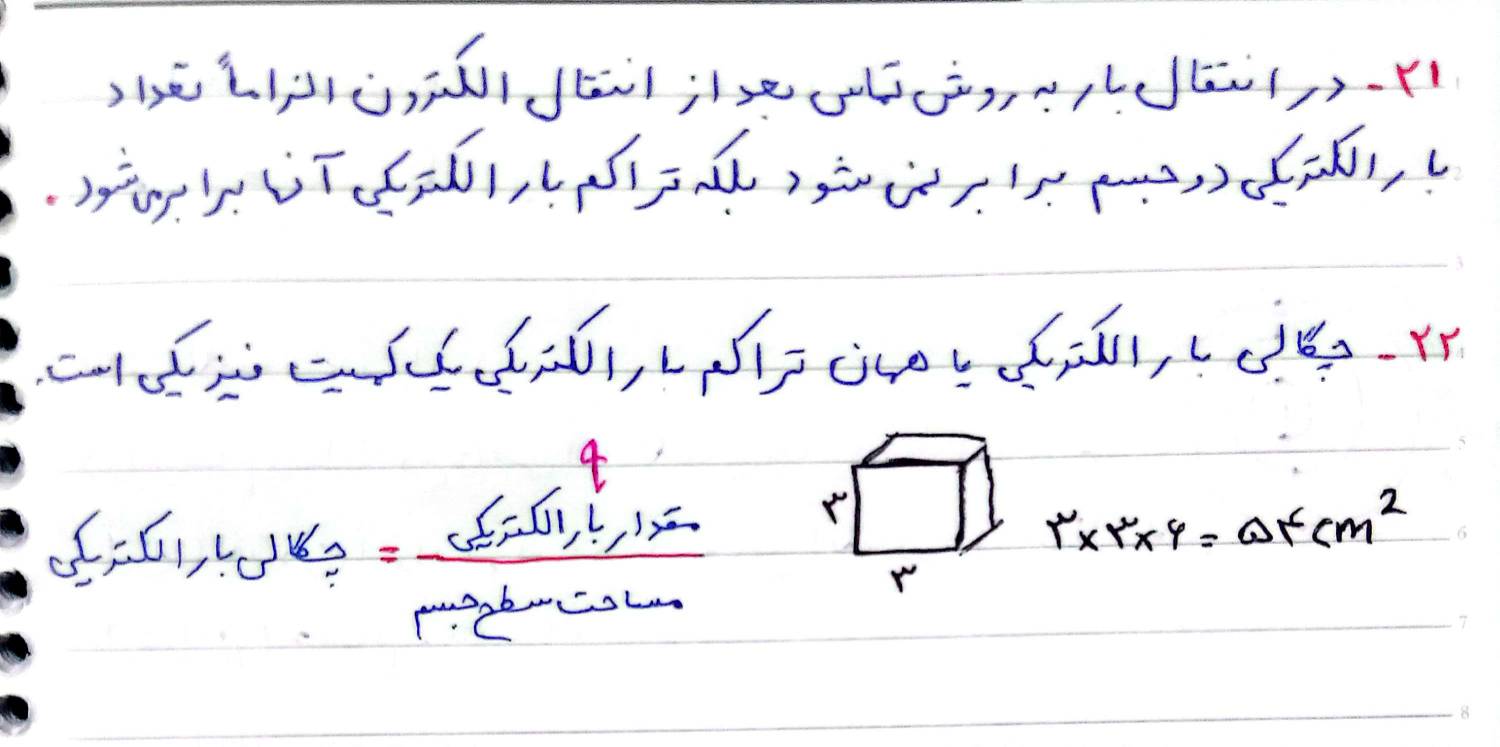 ۲۱- در انتقال بار به روش تماس بعد از انتقال الکترون الزاماً تعداد
بار الکتریکی دو جسم برابر نمی شود بلکه تراکم بار الکتریکی آنها برابر می شود.
۲۲- چگالی بار الکتریکی یا همان تراکم بار الکتریکی یک کمیت فیزیکی است.
q
چگالی بار الکتریکی = مقدار بار الکتریکی
مساحت سطح جسم
۳
۳
۳×۳×۶=۵۴cm²
3
5
6
7
8